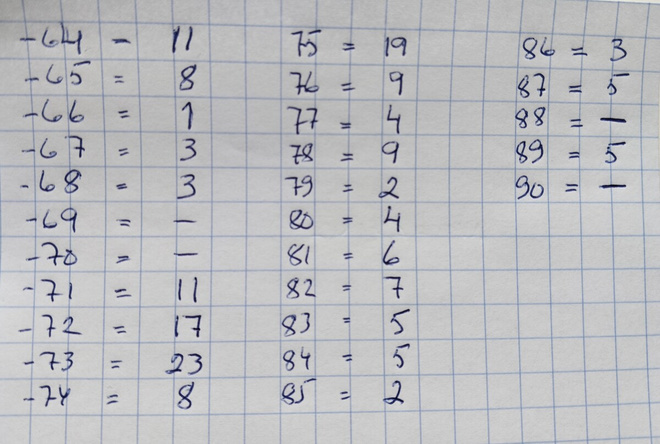 -64 - 11
-65 = 8
-66 = 1
-67 = 3
-68 = 3
-69 = -
-70 = -
-71 = 11
-72 = 17
-73 = 23
-74 = 8
75 = 19
76 = 9
77 = 4
78 = 9
79 = 2
80 = 4
81 = 6
82 = 7
83 = 5
84 = 5
85 = 2
86 = 3
87 = 5
88 = -
89 = 5
90 = -